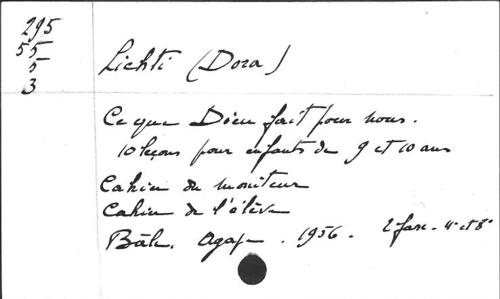 295
55
5
3
Lichti (Dora)
Ce que Dieu fait pour nous.
10 leçons pour enfants de 9 et 10 ans
Cahier du moniteur
Cahier de l'élève
Bâle. Agape. 1956. 2 fasc. 4° et 8°